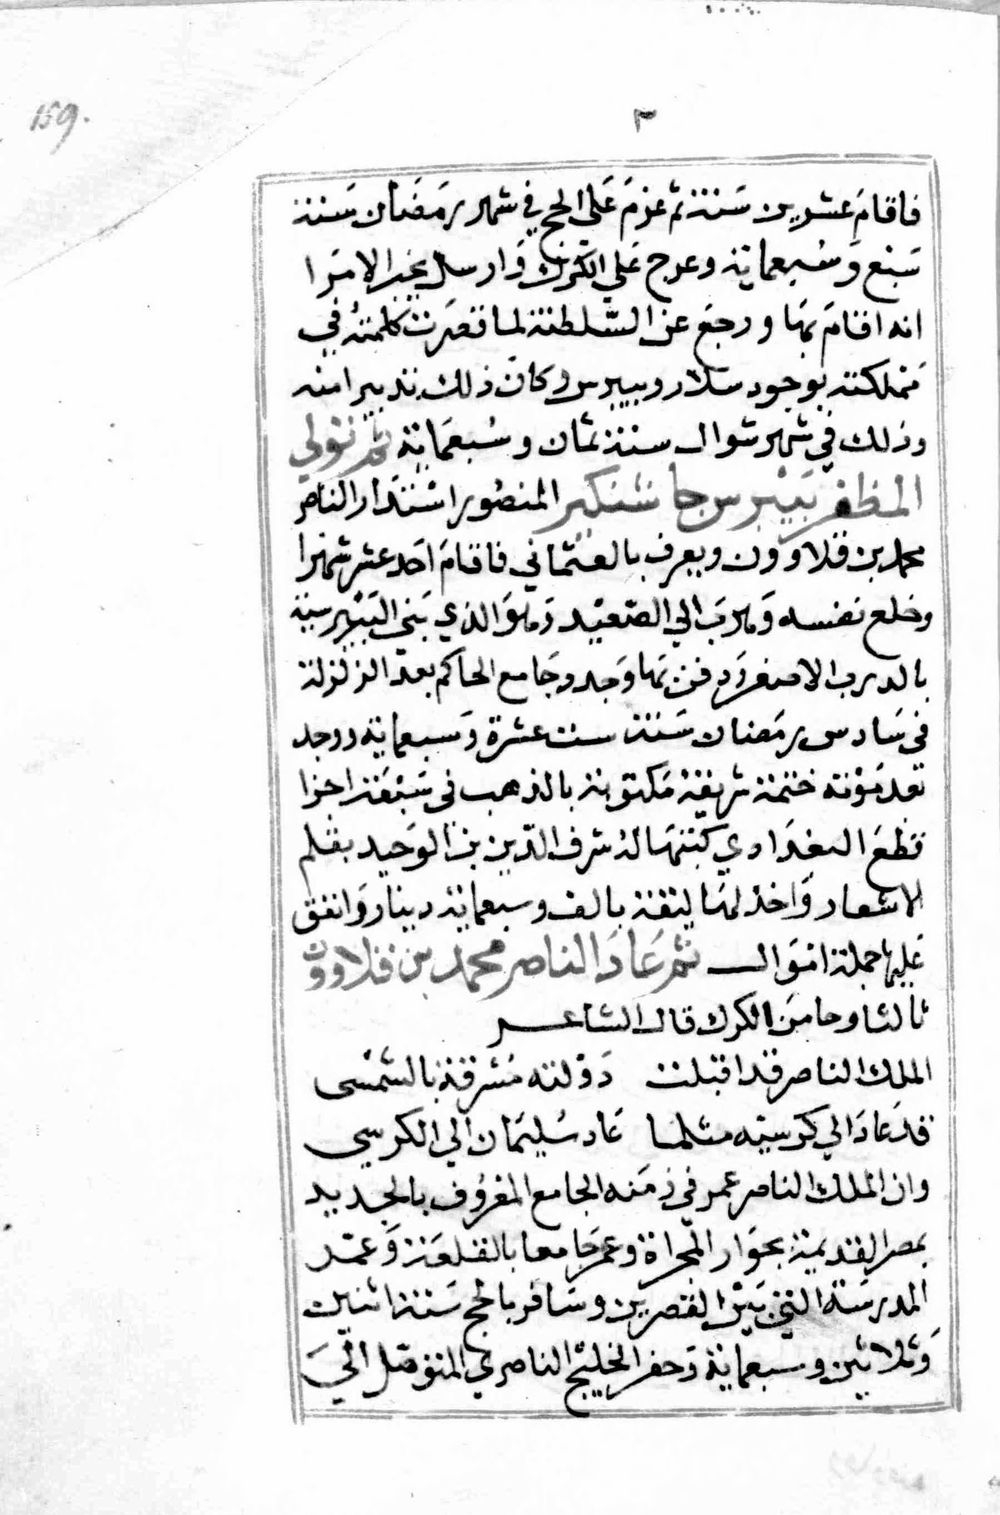 159.
٣
فاقام عشرين سنة ثم عزم على الحج في شهر رمضان سنة
سبع وسبعماية وعرج على الكرك وارسل يخبر الامرا
انه اقام بها ورجع عن السلطنة لما قصرت كلمته في
مملكته بوجود سلار وبيبرس وكان ذلك تدبير امنه
وذلك في شهر شوال سنة ثمان وسبعماية ثم تولي
المظفر بيبرس جاشنكير المنصوراستدار الناصر
محمد بن قلاوون ويعرف بالعثماني فاقام احد عشر شهرا
وخلع نفسه وهرب الي الصعيد وهو الذي بني البيبرسية
بالدرب الاصفر ودفن بها وجدد جامع الحاكم بعد الزلزلة
في سادس رمضان سنة ست عشرة وسبعماية ووجد
بعد موته ختمة شريفة مكتوبة بالذهب في سبعة اجزا
قطع البغدادي كتبتها له شرف الدين بن الوحيد بقلم
الاشعار واخذ لها ليقة بالف وسبعماية دينار وانفق
عليها جملة اموال ثم عاد الناصر محمد بن قلاوون
ثالثا وجا من الكرك قال الشاعر
الملك الناصر قد اقبلت دولته مشرقة بالشمس
قد عاد الي كرسيه مثلما عاد سليمان الي الكرسي
وان الملك الناصر عمر في زمنه الجامع المعروف بالجديد
بمصر القديمة بجوار المجراة وعمر جامعا بالقلعة وعمر
المدرسة التي بين القصرين وسافر بالحج سنة اثنين
وثلاثين وسبعماية وحفر الخليج الناصري المتوصل الي